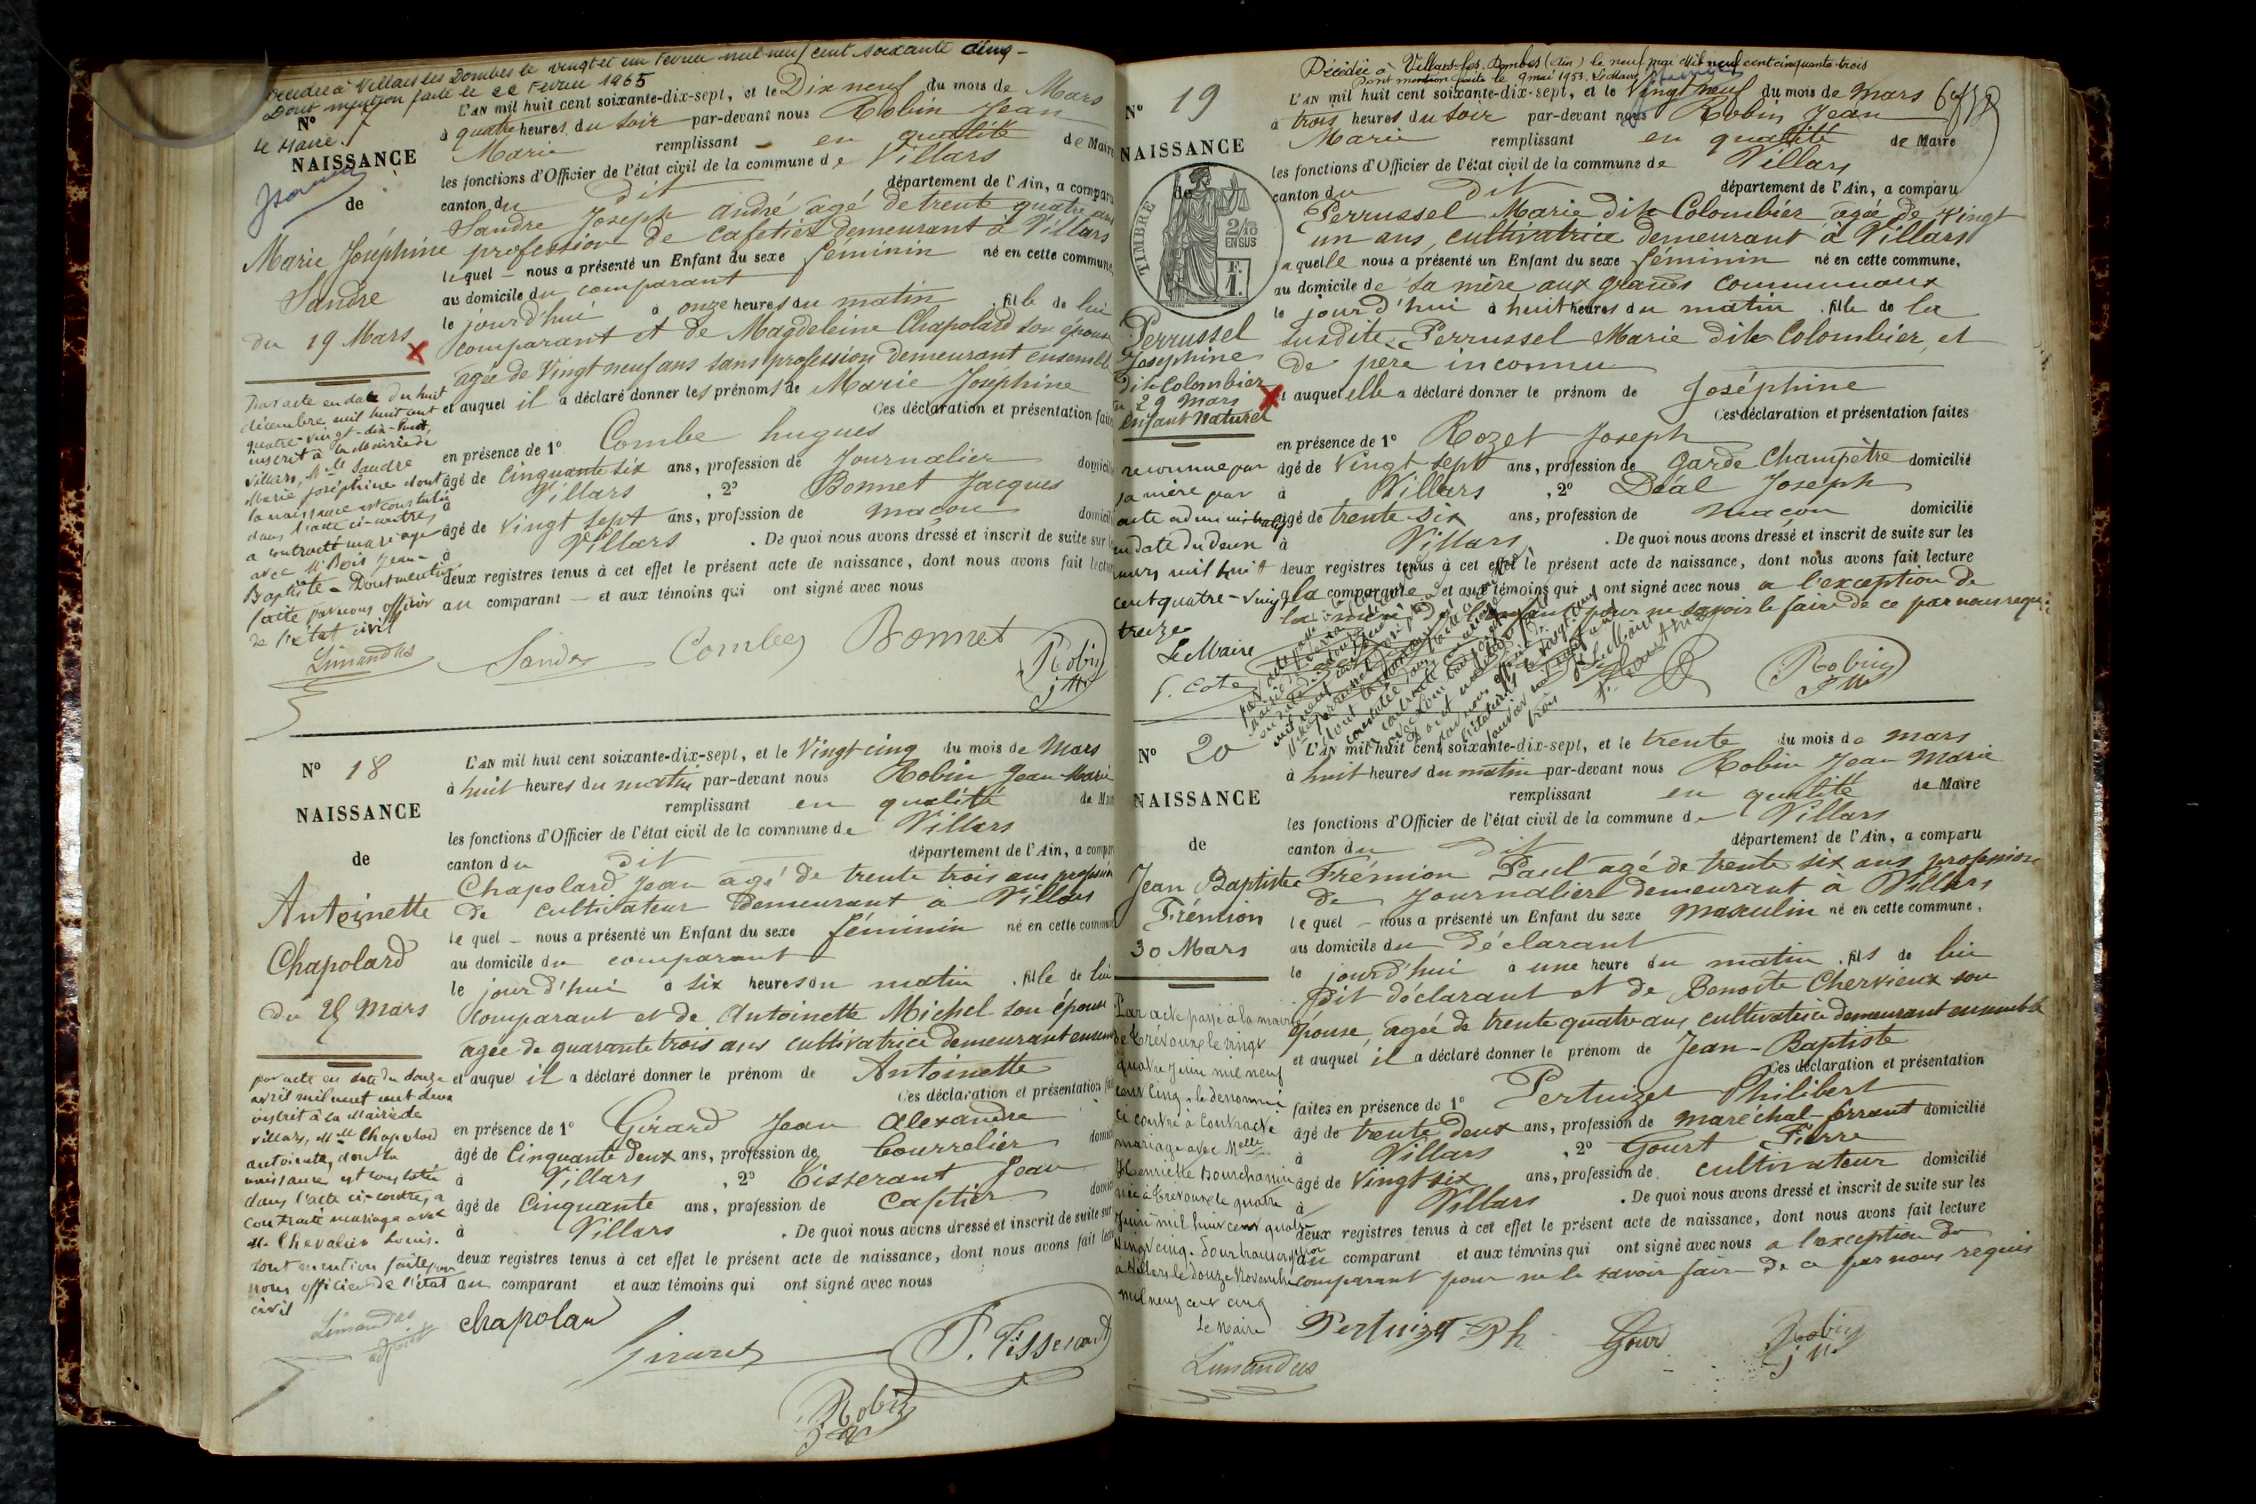 Décédée à Villars les Dombes le vingt et un Fevrier mil neuf cent soixante cinq -
Dont mention faite le 22 Fevrier 1965
Le Maire.
N°
NAISSANCE
de
Marie Joséphine
Sandre
du 19 Mars
L'AN mil huit cent soixante-dix-sept, et le Dix neuf du mois de Mars
à quatre heures du soir par-devant nous Robin Jean
Marie remplissant en qualité de Maire
les fonctions d'Officier de l'état civil de la commune de Villars
canton du dit département de l'Ain, a comparu
Sandre Joseph André agé de trente quatre ans
profession de cafetier demeurant à Villars
lequel - nous a présenté un Enfant du sexe féminin né en cette commune,
au domicile du comparant
le jourd'hui à onze heures du matin , fille de lui
comparant et de Magdeleine Chapolard son épouse
agée de Vingt neuf ans sans profession demeurant ensemble
et auquel il a déclaré donner les prénoms de Marie Joséphine
Ces déclaration et présentation faites
en présence de 1° Combe hugues
âgé de Cinquante six ans, profession de Journalier domicilié
à Villars , 2° Bonnet Jacques
âgé de Vingt sept ans, profession de maçon domicilié
à Villars . De quoi nous avons dressé et inscrit de suite sur les
deux registres tenus à cet effet le présent acte de naissance, dont nous avons fait lecture
au comparant - et aux témoins qui ont signé avec nous
Par acte en date du huit
décembre mil huit cent
quatre-vingt-dix-huit,
inscrit à la Mairie de
Villars, Mlle Sandre
Marie Joséphine dont
la naissance est constatée
dans l'acte ci-contre,
a contracté mariage
avec Mr Bois Jean-
Baptiste - Dont mention
faite par nous officier
de l'état civil
Limandas
Sandre Combe Bonnet Robin
J M
N° 18
NAISSANCE
de
Antoinette
Chapolard
du 25 Mars
L'AN mil huit cent soixante-dix-sept, et le Vingt cinq du mois de Mars
à huit heures du matin par-devant nous Robin Jean-Marie
remplissant en qualité de Maire
les fonctions d'Officier de l'état civil de la commune de Villars
canton du dit département de l'Ain, a comparu
Chapolard Jean agé de trente trois ans profession
de cultivateur demeurant à Villars
lequel - nous a présenté un Enfant du sexe féminin né en cette commune
au domicile du comparant
le jourd'hui à six heures du matin , fille de lui
comparant et de Antoinette Michel son épouse
agée de quarante trois ans cultivatrice demeurant ensemble
et auquel il a déclaré donner le prénom de Antoinette
Ces déclaration et présentation faites
en présence de 1° Girard Jean Alexandre
âgé de Cinquante deux ans, profession de bourrelier domicilié
à Villars , 2° Tisserant Jean
âgé de Cinquante ans, profession de Caftier domicilié
à Villars . De quoi nous avons dressé et inscrit de suite sur
deux registres tenus à cet effet le présent acte de naissance, dont nous avons fait lecture
au comparant et aux témoins qui ont signé avec nous
par acte en date du douze
avril mil neuf cent deux
inscrit à la Mairie de
Villars, Mlle Chapolard
antoinette, dont la
naissance est constatée
dans l'acte ci-contre, a
contracté mariage avec
Mr Chevalier Louis.
Dont mention faite par
nous officier de l'état
civil
Limandas
chapolard
Girard J. Tisserant
Robin
Décédée à Villars-les-Dombes (Ain) le neuf mai Mil neuf cent cinquante trois
Dont mention faite le 9 mai 1953. Le Maire
N° 19
NAISSANCE
de
TIMBRE
2/10
EN SUS
F.
1.
Perrussel
Joséphine
dite Colombier
du 29 Mars
Enfant Naturel
L'AN mil huit cent soixante-dix-sept, et le Vingt neuf du mois de Mars
à trois heures du soir par-devant nous Robin Jean
Marie remplissant en qualité de Maire
les fonctions d'Officier de l'état civil de la commune de Villars
canton du dit département de l'Ain, a comparu
Perrussel Marie dite Colombier agée de vingt
un ans, cultivatrice demeurant à Villars
laquelle nous a présenté un Enfant du sexe féminin né en cette commune,
au domicile de sa mère aux grands communaux
le jourd'hui à huit heures du matin , fille de la
susdite Perrussel Marie dite Colombier, et
de père inconnu
et auquel elle a déclaré donner le prénom de Joséphine
Ces déclaration et présentation faites
en présence de 1° Rozet Joseph
âgé de Vingt sept ans, profession de Garde Champêtre domicilié
à Villars , 2° Déal Joseph
âgé de trente six ans, profession de maçon domicilié
à Villars . De quoi nous avons dressé et inscrit de suite sur les
deux registres tenus à cet effet le présent acte de naissance, dont nous avons fait lecture
à la comparante et aux témoins qui ont signé avec nous a l'exception de
la mère de l'enfant pour ne savoir le faire de ce par nous requis
reconnue par
sa mère par
acte administratif
en date du deux
mars mil huit
cent quatre-vingt
treize
Le Maire
Robin
J M
N° 20
NAISSANCE
de
Jean Baptiste
Frémion
30 Mars
L'AN mil huit cent soixante-dix-sept, et le trente du mois de mars
à huit heures du matin par-devant nous Robin Jean Marie
remplissant en qualité de Maire
les fonctions d'Officier de l'état civil de la commune de Villars
canton du dit département de l'Ain, a comparu
Frémion Paul agé de trente six ans profession
de Journalier demeurant à Villars
lequel - nous a présenté un Enfant du sexe masculin né en cette commune,
au domicile du Déclarant
le jourd'hui à une heure du matin , fils de lui
dit déclarant et de Benoite Chervieux son
épouse, agée de trente quatre ans cultivatrice demeurant ensemble
et auquel il a déclaré donner le prénom de Jean-Baptiste
Ces déclaration et présentation
faites en présence de 1° Pertuizet Philibert
âgé de trente deux ans, profession de maréchal-ferrant domicilié
à Villars , 2° Gourt Pierre
âgé de Vingt six ans, profession de cultivateur domicilié
à Villars . De quoi nous avons dressé et inscrit de suite sur les
deux registres tenus à cet effet le présent acte de naissance, dont nous avons fait lecture
au comparant et aux témoins qui ont signé avec nous a l'exception du
comparant pour ne le savoir faire de ce par nous requis
Par acte passé à la mairie
de Trévoux le vingt
quatre Juin mil neuf
cent cinq, le dénommé
ci contre à contracté
mariage avec Melle
Henriette Bourchanin
née à Trévoux le quatre
Juin mil huit cent quatre
vingt cinq. Pour transcription
à Villars le douze Novembre
mil neuf cent cinq
Le Maire
Limandas
Pertuizet Ph Gour Robin
J M